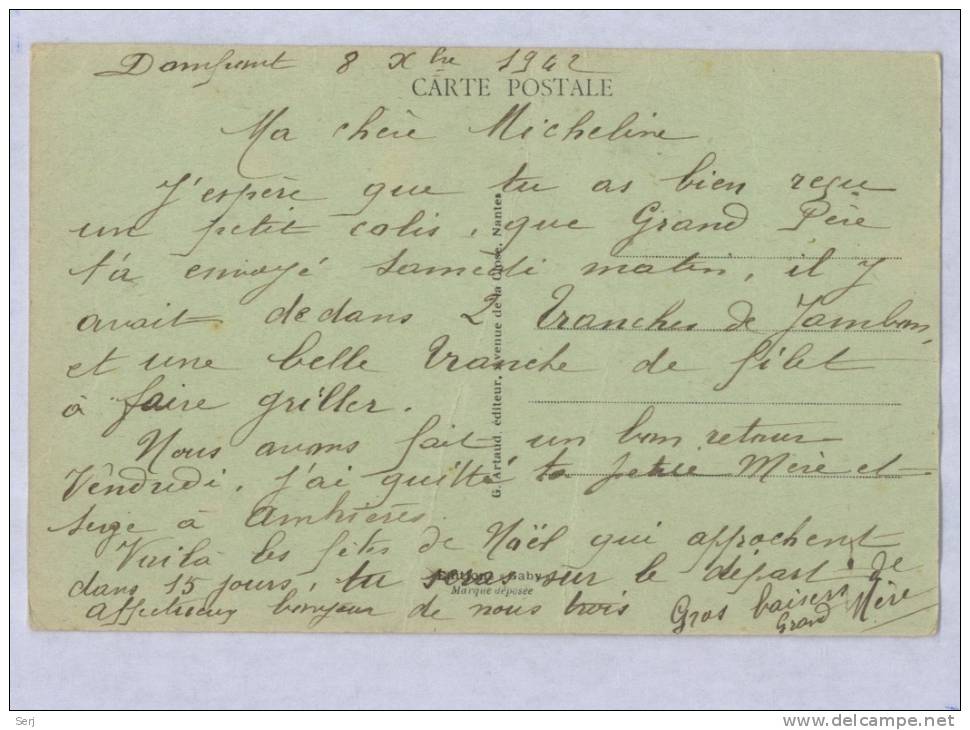 Domfront 8 Xbre 1942
CARTE POSTALE
Ma chère Micheline
J'espère que tu as bien reçu
un petit colis, que Grand Père
t'a envoyé samedi matin, il y
avait dedans 2 tranches de Jambon,
et une belle tranche de filet
à faire griller.
Nous avons fait un bon retour
Vendredi, j'ai quitté ta petite Mère et
Serge à Ambrières.
Voilà les fêtes de Noël qui approchent
dans 15 jours, tu seras sur le départ. de
affectueux bonjour de nous trois
Gros baisers
Grand Mère
G. Artaud, éditeur, Avenue de la Close, Nantes
Editions Gaby
Marque déposée
Serj
www.delcampe.net